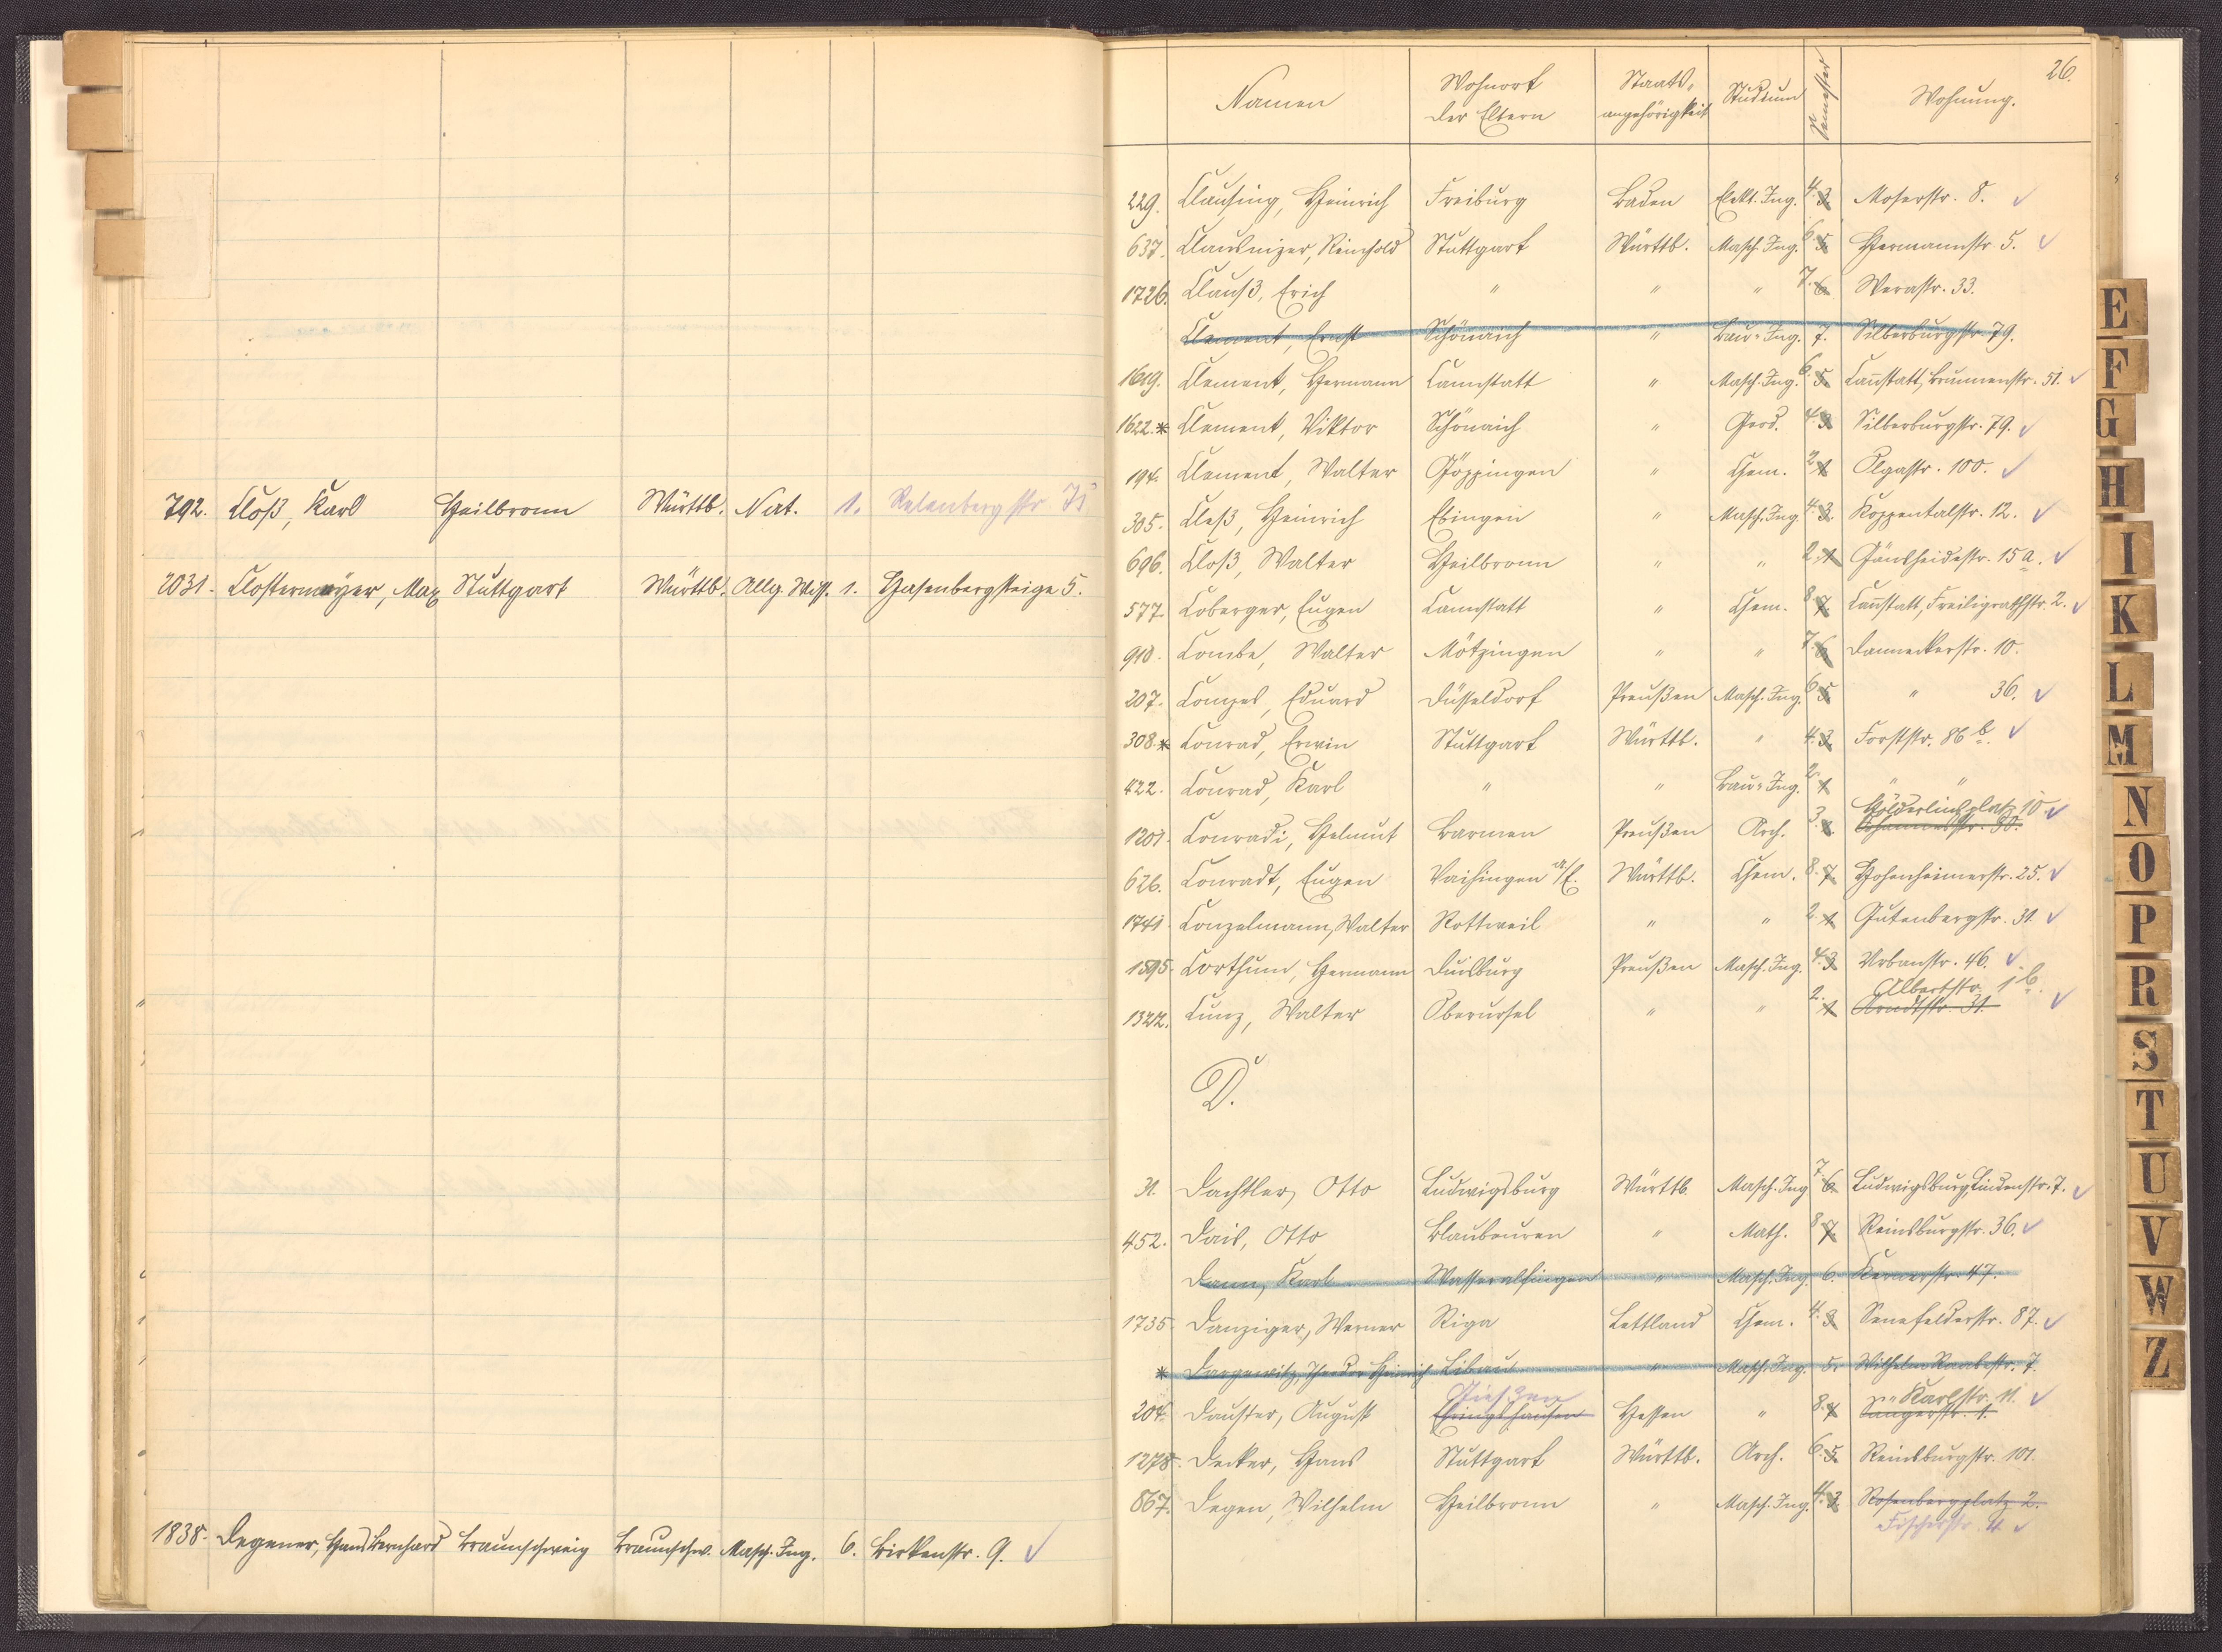 792. Cloß, Karl Heilbronn Württb. Nat. 1. Relenbergstr. 75
2031. Clostermeyer, Max Stuttgart Württb. Allg. Wiss. 1. Hasenbergsteige 5.
1838. Degener, Hans Bernhard Braunschweig Braunschw. Masch. Ing. 6. Birkenstr. 9. ✓
26.
Namen Wohnort der Eltern Staats-angehörigkeit Studium Semester Wohnung.
229. Clausing, Heinrich Freiburg Baden Elekt. Ing. 4. 3. Moserstr. 8. ✓
637. Clausnizer, Reinhold Stuttgart Württb. Masch. Ing. 6. 5. Hermannstr. 5. ✓
1726. Clauß, Erich " " " 7. 6. Werastr. 33.
Clement, Ernst Schönaich " Bau-Ing. 7. Silberburgstr. 79.
1619. Clement, Hermann Cannstatt " Masch. Ing. 6. 5. Cannstatt, Brunnenstr. 51. ✓
1622.* Clement, Viktor Schönaich " Geod. 4. 3. Silberburgstr. 79. ✓
194. Clement, Walter Göppingen " Chem. 2. 1. Olgastr. 100. ✓
305. Cleß, Heinrich Ebingen " Masch. Ing. 4. 3. Koppentalstr. 12. ✓
696. Cloß, Walter Heilbronn " " 2. 1. Gänsheidestr. 15a. ✓
577. Coberger, Eugen Cannstatt " Chem. 8. 7. Cannstatt, Freiligrathstr. 2. ✓
910. Combe, Walter Mötzingen " " 7. 6. Danneckerstr. 10.
207. Compes, Eduard Düsseldorf Preußen Masch. Ing. 6. 5. " 36. ✓
308.* Conrad, Erwin Stuttgart Württb. " 4. 3. Forststr. 86b. ✓
422. Conrad, Karl " " Bau-Ing. 2. 1. " "
Hölderlinplatz 10 ✓
1201. Conradi, Helmut Barmen Preußen Arch. 3. Johannesstr. 30.
626. Conradt, Eugen Vaihingen a/E. Württb. Chem. 8. 7. Hohenheimerstr. 25. ✓
1741. Conzelmann, Walter Rottweil " " 2. 1. Gutenbergstr. 31. ✓
1595. Corthum, Hermann Duisburg Preußen Masch. Ing. 4. 3. Urbanstr. 46. ✓
Albertstr. 1b.
1322. Cunz, Walter Oberursel " " 2. 1. Arndtstr. 31. ✓
D.
31. Dachtler, Otto Ludwigsburg Württb. Masch. Ing 7. 6. Ludwigsburg, Lindenstr. 7. ✓
452. Dais, Otto Blaubeuren " Math. 8. 7. Reinsburgstr. 36. ✓
Dann, Karl Wasseralfingen " Masch. Ing. 6. Kernerstr. 47.
1735. Danziger, Werner Riga Lettland Chem. 4. 3. Senefelderstr. 87. ✓
* Theodor Heinrich Libau " Masch. Ing. 5. Wilhelm Raabestr. 7.
Karlstr. 11. ✓
204. Dauster, August Ehringshausen Hessen " 8. 7. Sängerstr. 1.
1278. Decker, Hans Stuttgart Württb. Arch. 6. 5. Reinsburgstr. 101.
867. Degen, Wilhelm Heilbronn " Masch. Ing. 4. 3. Rosenbergplatz 2.
Fischerstr. 4 ✓
E
F
G
H
I
K
L
M
N
O
P
R
S
T
U
V
W
Z